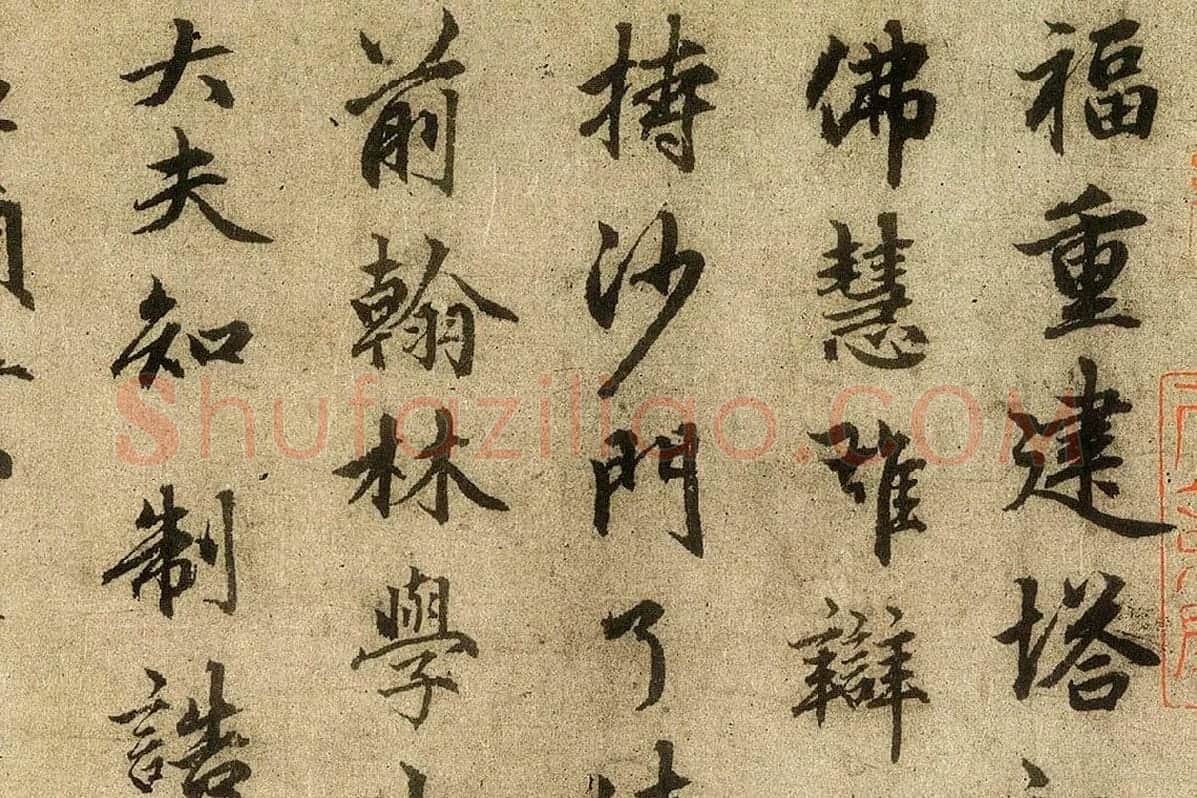 福重建塔
佛慧雄辯
沙門了
前翰林學
大夫知制誥
Shufaziliao.COM